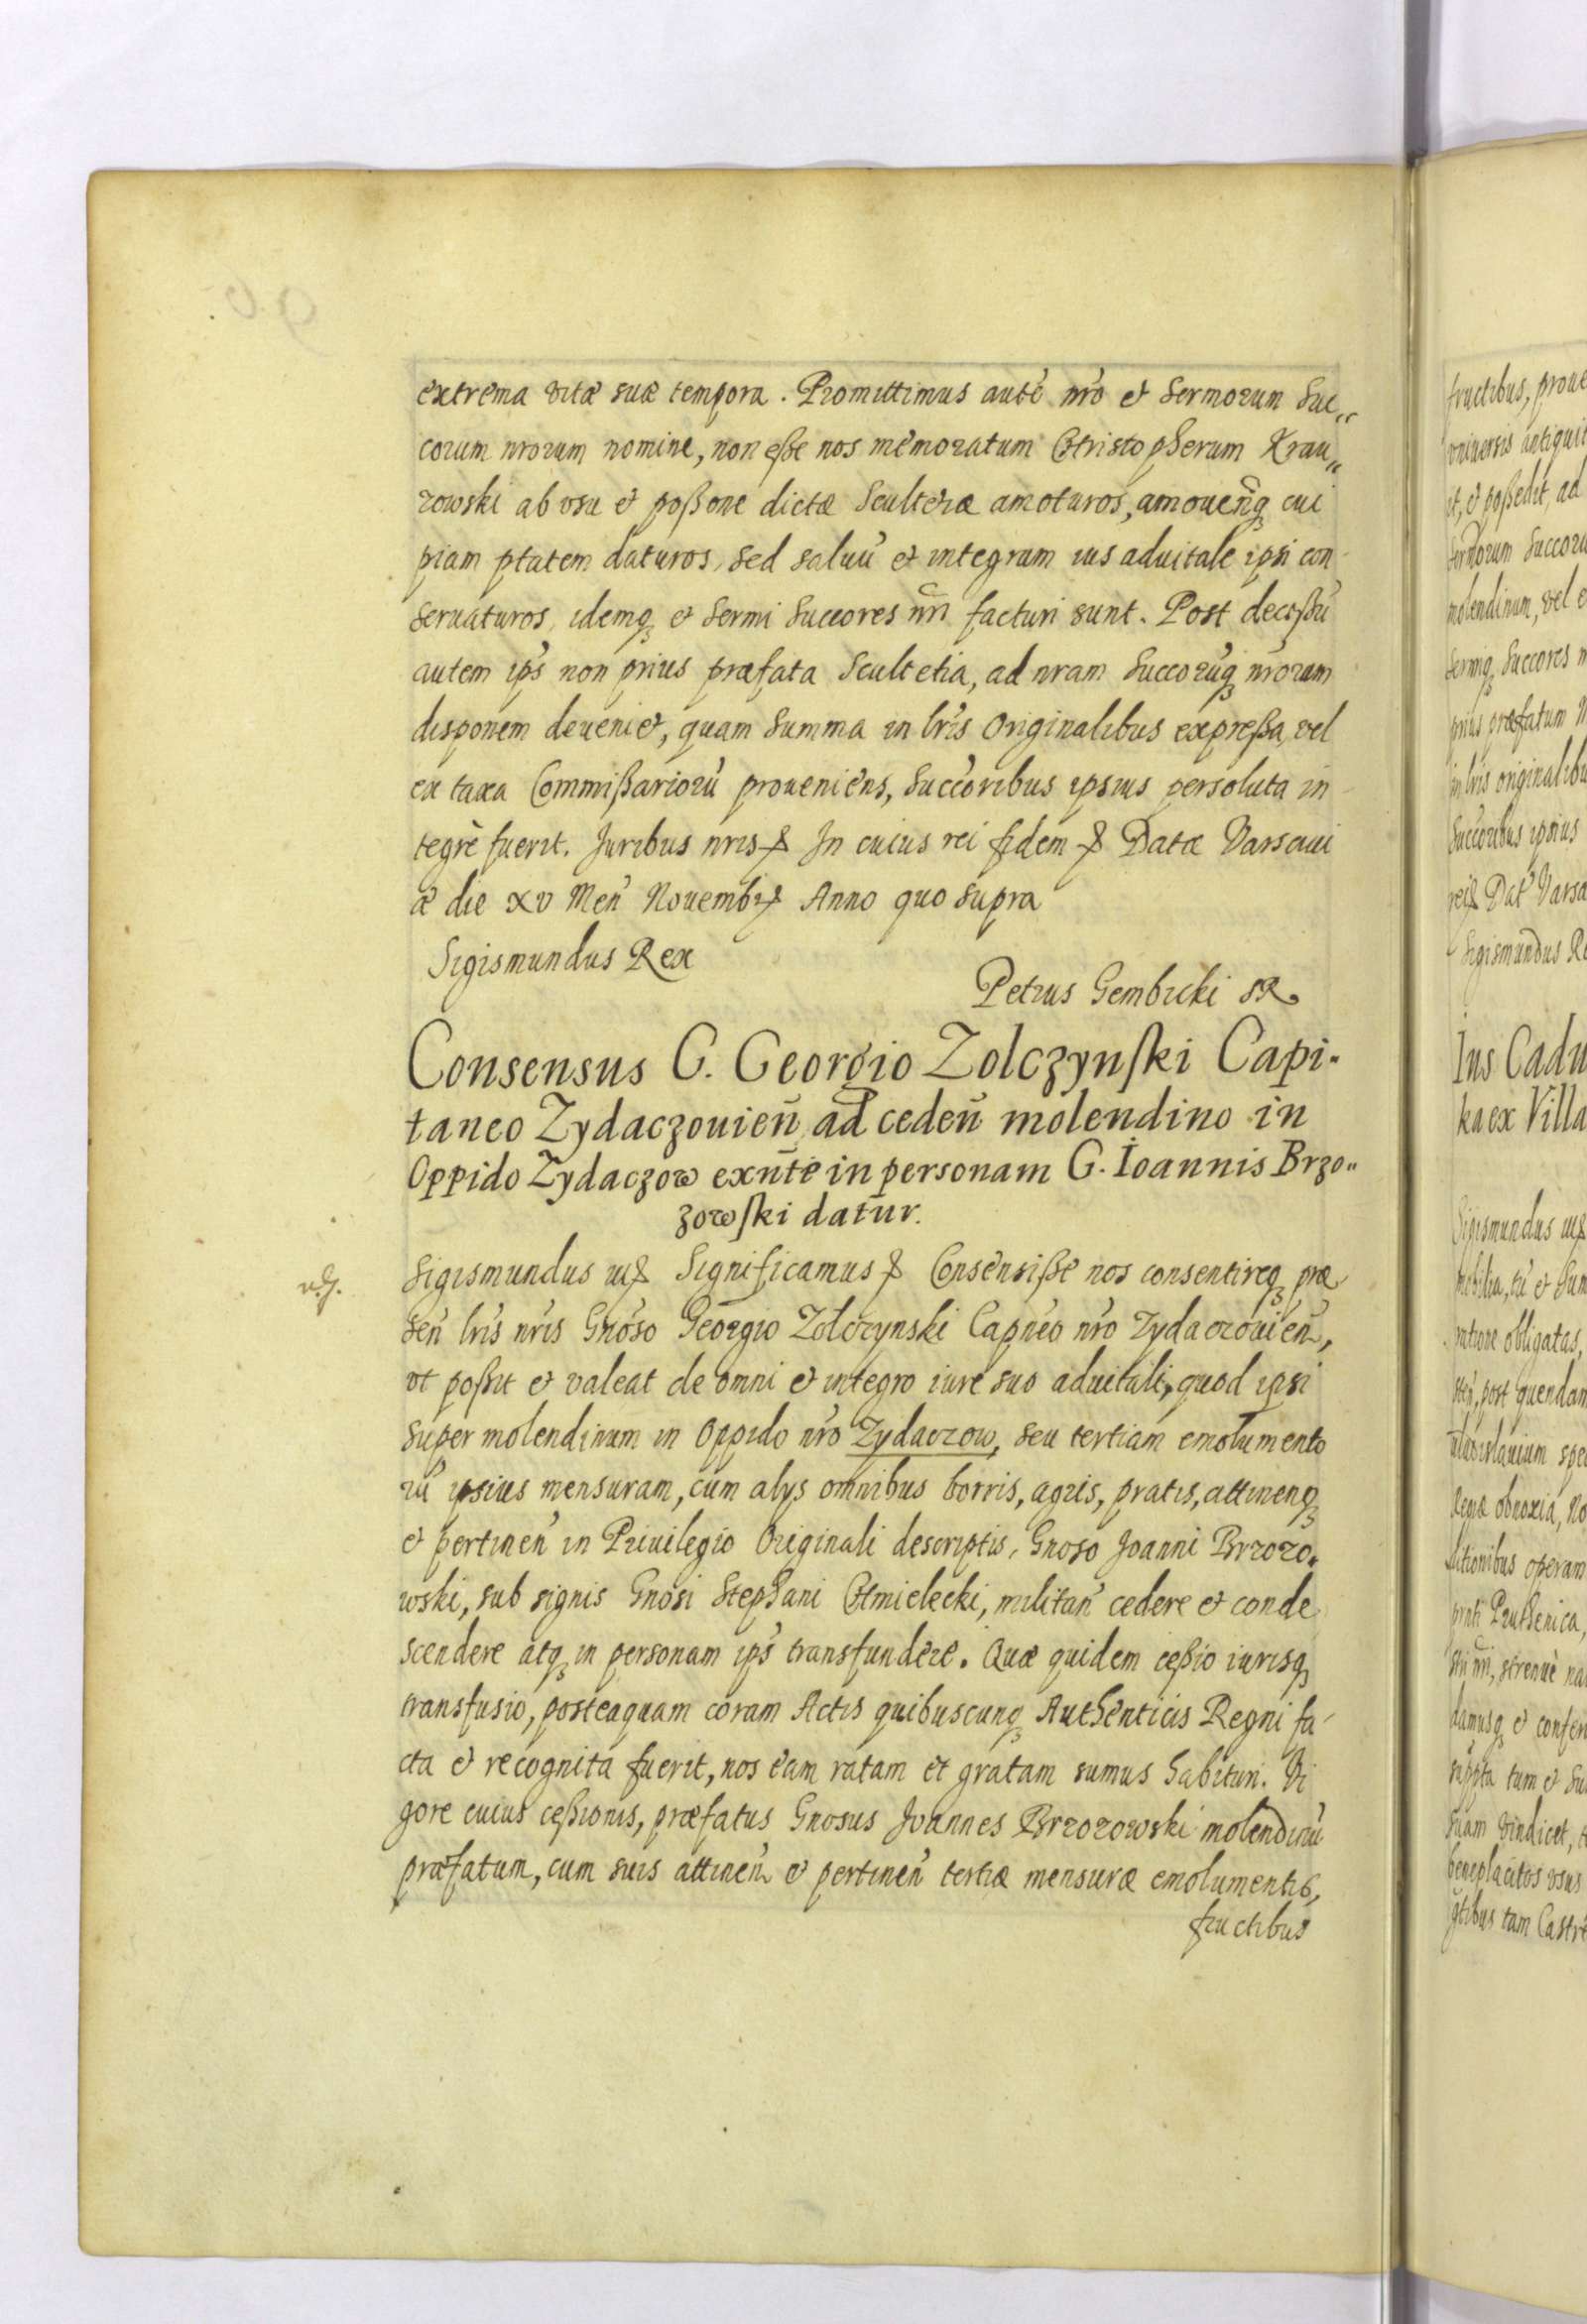 extrema vitæ suæ tempora. Promittimus autē nrō et Sermorum Suc„
corum nrorum nomine, non eße nos memoratum Christopherum Krau„
zowski ab vsu et poßone dictæ Scultetiæ amoturos, amouen̄q cui
piam ptatem daturos, sed saluū et integrum ius aduitale ipsi con
seruaturos, idemq et Sermi Succores nri facturi sunt. Post deceßū
autem ips non prius præfata Scultetia, ad nram Succorūq nrorum
disponem deueniet, quam Summa in lris Originalibus expreßa, vel
ex taxa Commißariorū proueniens, Succoribus ipsius persoluta in
tegrè fuerit. Juribus nris etc In cuius rei fidem etc Datæ Varsaui
æ die xv Men Nouembr Anno quo supra
Sigismundus Rex
Petrus Gembicki SR.
Consensus G. Georgio Zolczynski Capi-
taneo Zydaczouien ad ceden molendino in
Oppido Zydaczow exnte in personam G. Ioannis Brzo„
zowski datur.
Sigismundus iii etc Significamus etc Consensiße nos consentireq præ
sen lris nris Gnoso Georgio Zolczynski Capneo nro Zydaczouien,
vt poßit et valeat de omni et integro iure suo aduitali, quod ipsi
super molendinum in Oppido nro Zydaczow, seu tertiam emolumento
rū ipsius mensuram, cum alys omnibus borris, agris, pratis, attinenq
et pertinen in Priuilegio Originali descriptis, Gnoso Joanni Brzozo.
wski, sub signis Gnosi Stephani Chmielecki, militan cedere et conde
scendere atq in personam ips transfundere. Quæ quidem ceßio iurisq
transfusio, posteaquam coram Actis quibuscunq Authenticis Regni fa
cta et recognita fuerit, nos eam ratam et gratam sumus habituri. Vi
gore cuius ceßionis, præfatus Gnosus Joannes Brzozowski molendinū
præfatum, cum suis attinen et pertinen tertiæ mensuræ emolumentis,
fructibus
fructibus, proue
vniuersis antiquit
et, et poßedit, ad
Sermorum Succoru
molendinum, vel e
Sermiq Succores n
prius præfatum M
in lris originalibu
Succoribus ipsius
rei etc Dat Varsa
Sigismundus Re
Ius Cadu
ka ex Villa
Sigismundus iii etc
mobilia, tū et Sum
ratione obligatas,
sten, post quendam
uladislauium spe
Regiæ obnoxia, No
ditionibus operam
prati Pruthenica,
stri nri, strenuè na
damusq et confer
suppta tum et Su
suam vindicet, t
beneplacitos vsus
qtibus tam Castre